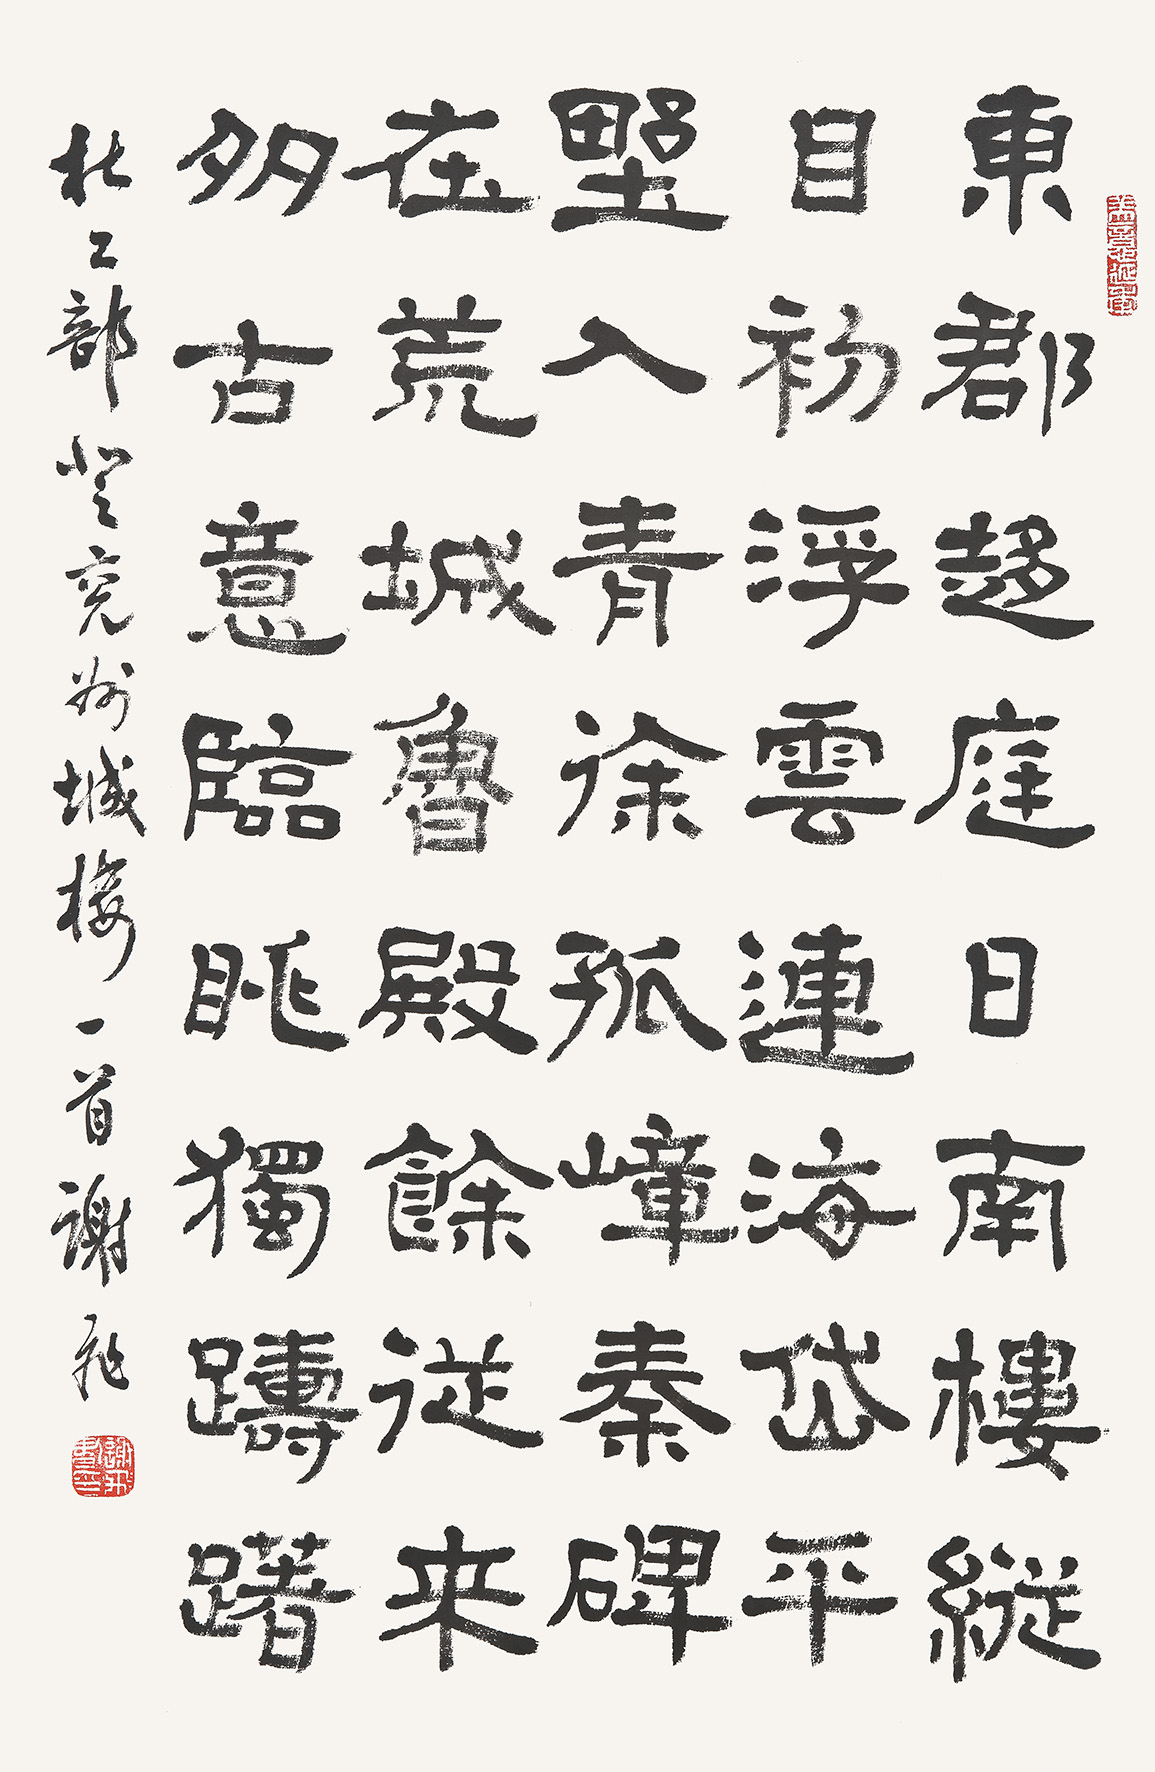 東郡趍庭日南樓縱
目初浮雲連海岱平
野入青徐孤嶂秦碑
在荒城魯殿餘従来
多古意臨眺獨躊躇
杜工部登兗州城樓一首謝飛